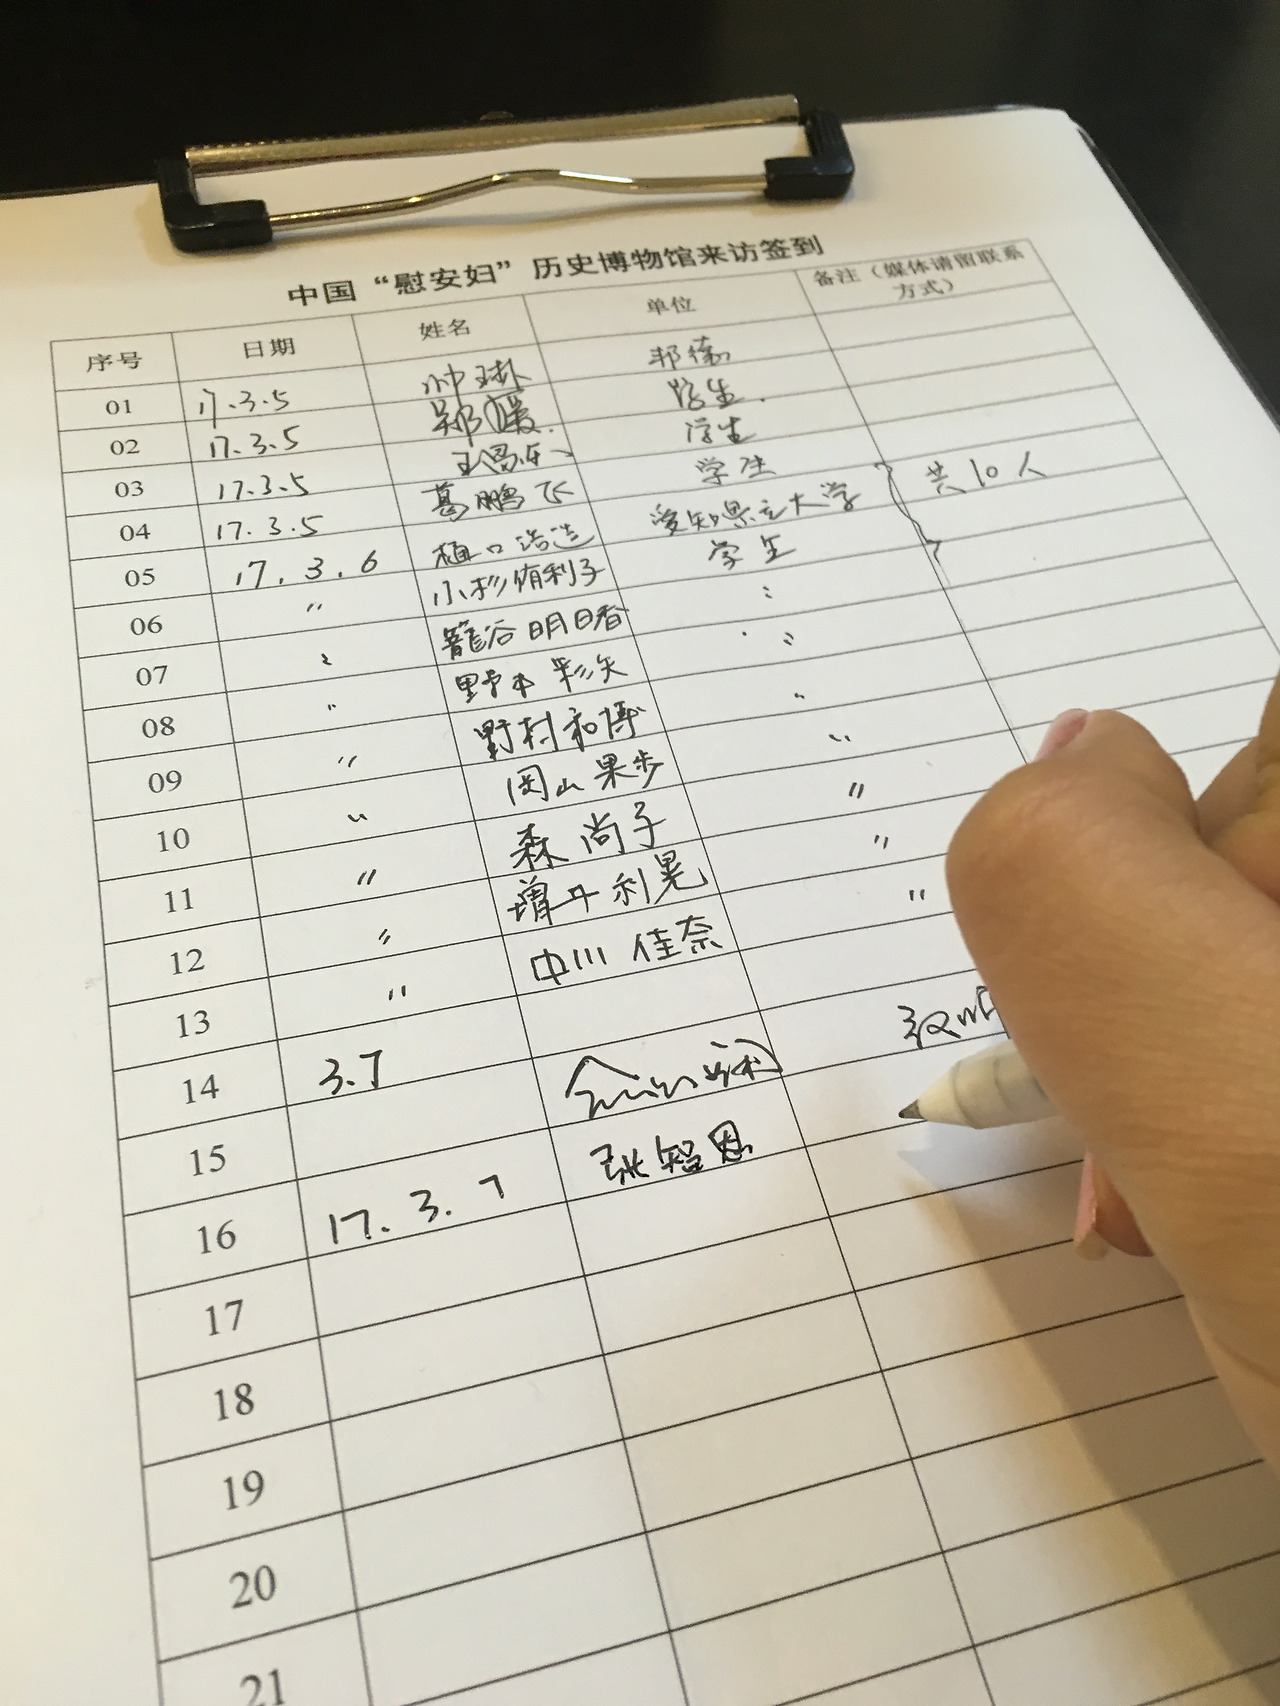 中国“慰安妇”历史博物馆来访签到
序号 日期 姓名 单位 备注（媒体请留联系方式）
01 17.3.5
02 17.3.5 学生
03 17.3.5 学生
04 17.3.5 葛鹏飞 学生
05 17.3.6 樋口浩造 愛知県立大学 共10人
06 〃 小杉侑利子 学生
07 〃 籠谷明日香 〃
08 〃 野本彩矢 〃
09 〃 野村和博 〃
10 〃 岡山果歩 〃
11 〃 森尚子 〃
12 〃 増井利晃 〃
13 〃 中川佳奈 〃
14 3.7
15
16 17.3.7 张智恩
17
18
19
20
21